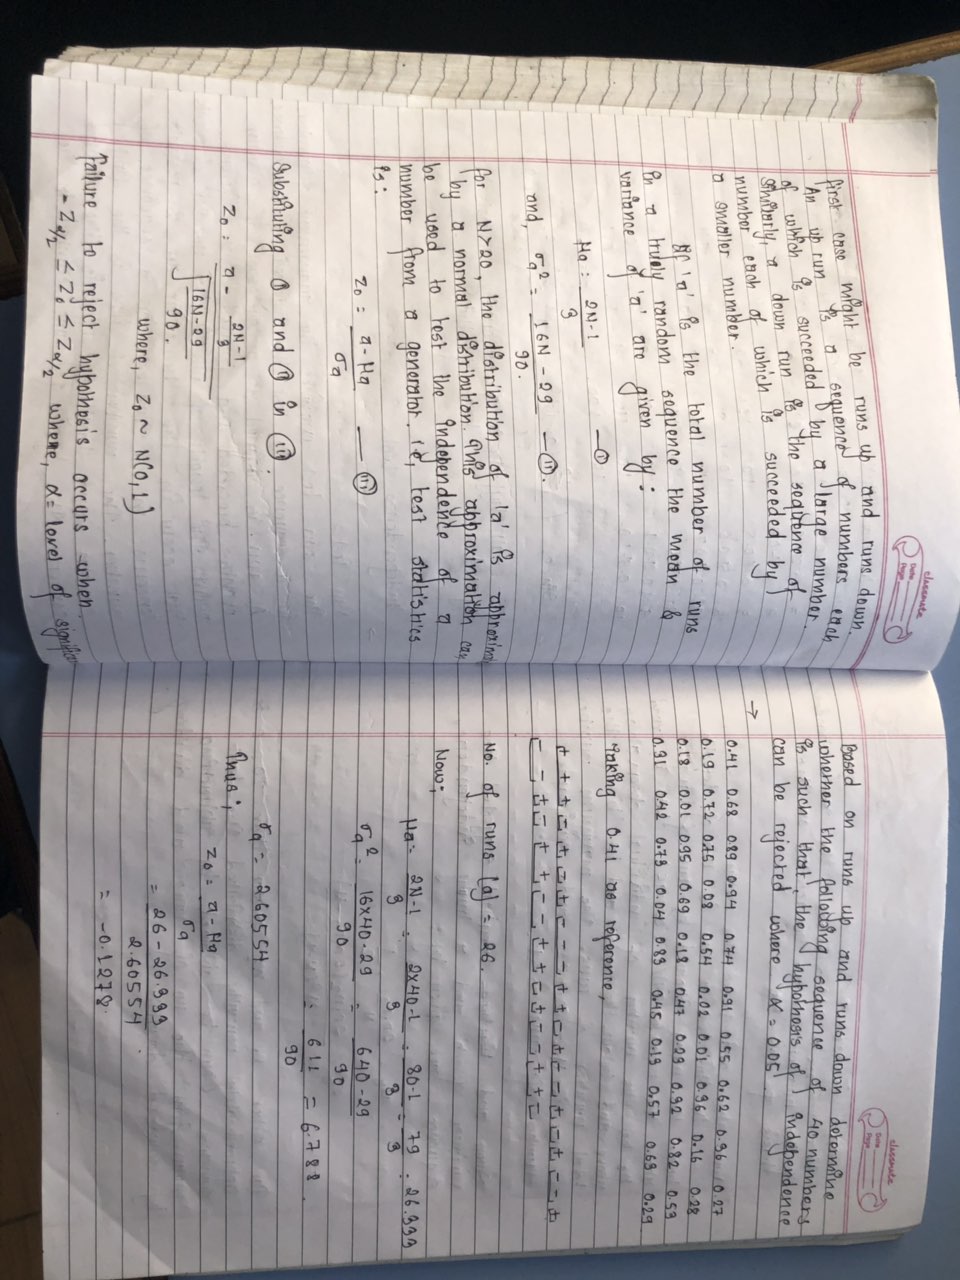 classmate
Date
Page
first case might be runs up and runs down.
An up run is a sequence of numbers each
of which is succeeded by a large number.
similarly, a down run is the sequence of
number each of which is succeeded by
a smaller number.
If 'a' is the total number of runs
in a truely random sequence the mean &
variance of 'a' are given by:
μa = 2N-1 / 3 — (i)
and, σa² = 16N - 29 / 90. — (ii).
for N>20, the distribution of 'a' is approxim
by a normal distribution. This approximation can
be used to test the independence of a
number from a generator. ie, test statistics
is:
Z₀ = a - μa / σa — (iii)
Substituting (i) and (ii) in (iii).
Z₀ = a - 2N-1/3 / √(16N-29 / 90.)
where, Z₀ ~ N(0,1)
Failure to reject hypothesis occurs when
-Zα/2 ≤ Z₀ ≤ Zα/2 where, α = level of signific
classmate
Date
Page
Based on runs up and runs down determine
whether the following sequence of 40 numbers
is such that the hypothesis of independence
can be rejected where α = 0.05.
→
0.41 0.68 0.89 0.94 0.74 0.91 0.55 0.62 0.36 0.27
0.19 0.72 0.75 0.08 0.54 0.02 0.01 0.36 0.16 0.28
0.18 0.01 0.95 0.69 0.18 0.47 0.23 0.32 0.82 0.53
0.31 0.42 0.73 0.04 0.83 0.45 0.13 0.57 0.63 0.29
Taking 0.41 as reference,
No. of runs (a) = 26.
Now;
μa = 2N-1 / 3 = 2×40-1 / 3 = 80-1 / 3 = 79 / 3 = 26.333
σa² = 16×40-29 / 90 = 640-29 / 90
= 611 / 90 = 6.788.
σa = 2.60554
Thus;
Z₀ = a - μa / σa
= 26 - 26.333 / 2.60554.
= -0.1278.